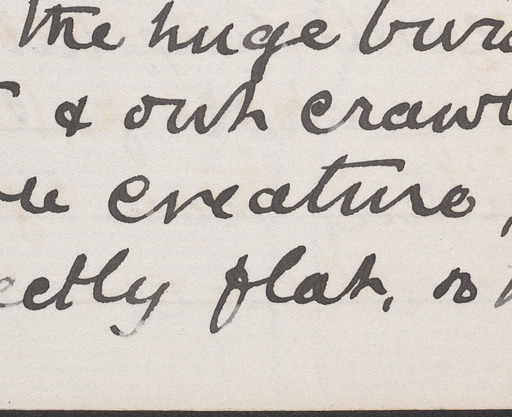 the huge burd
& out crawl
creature,
ectly flat, so